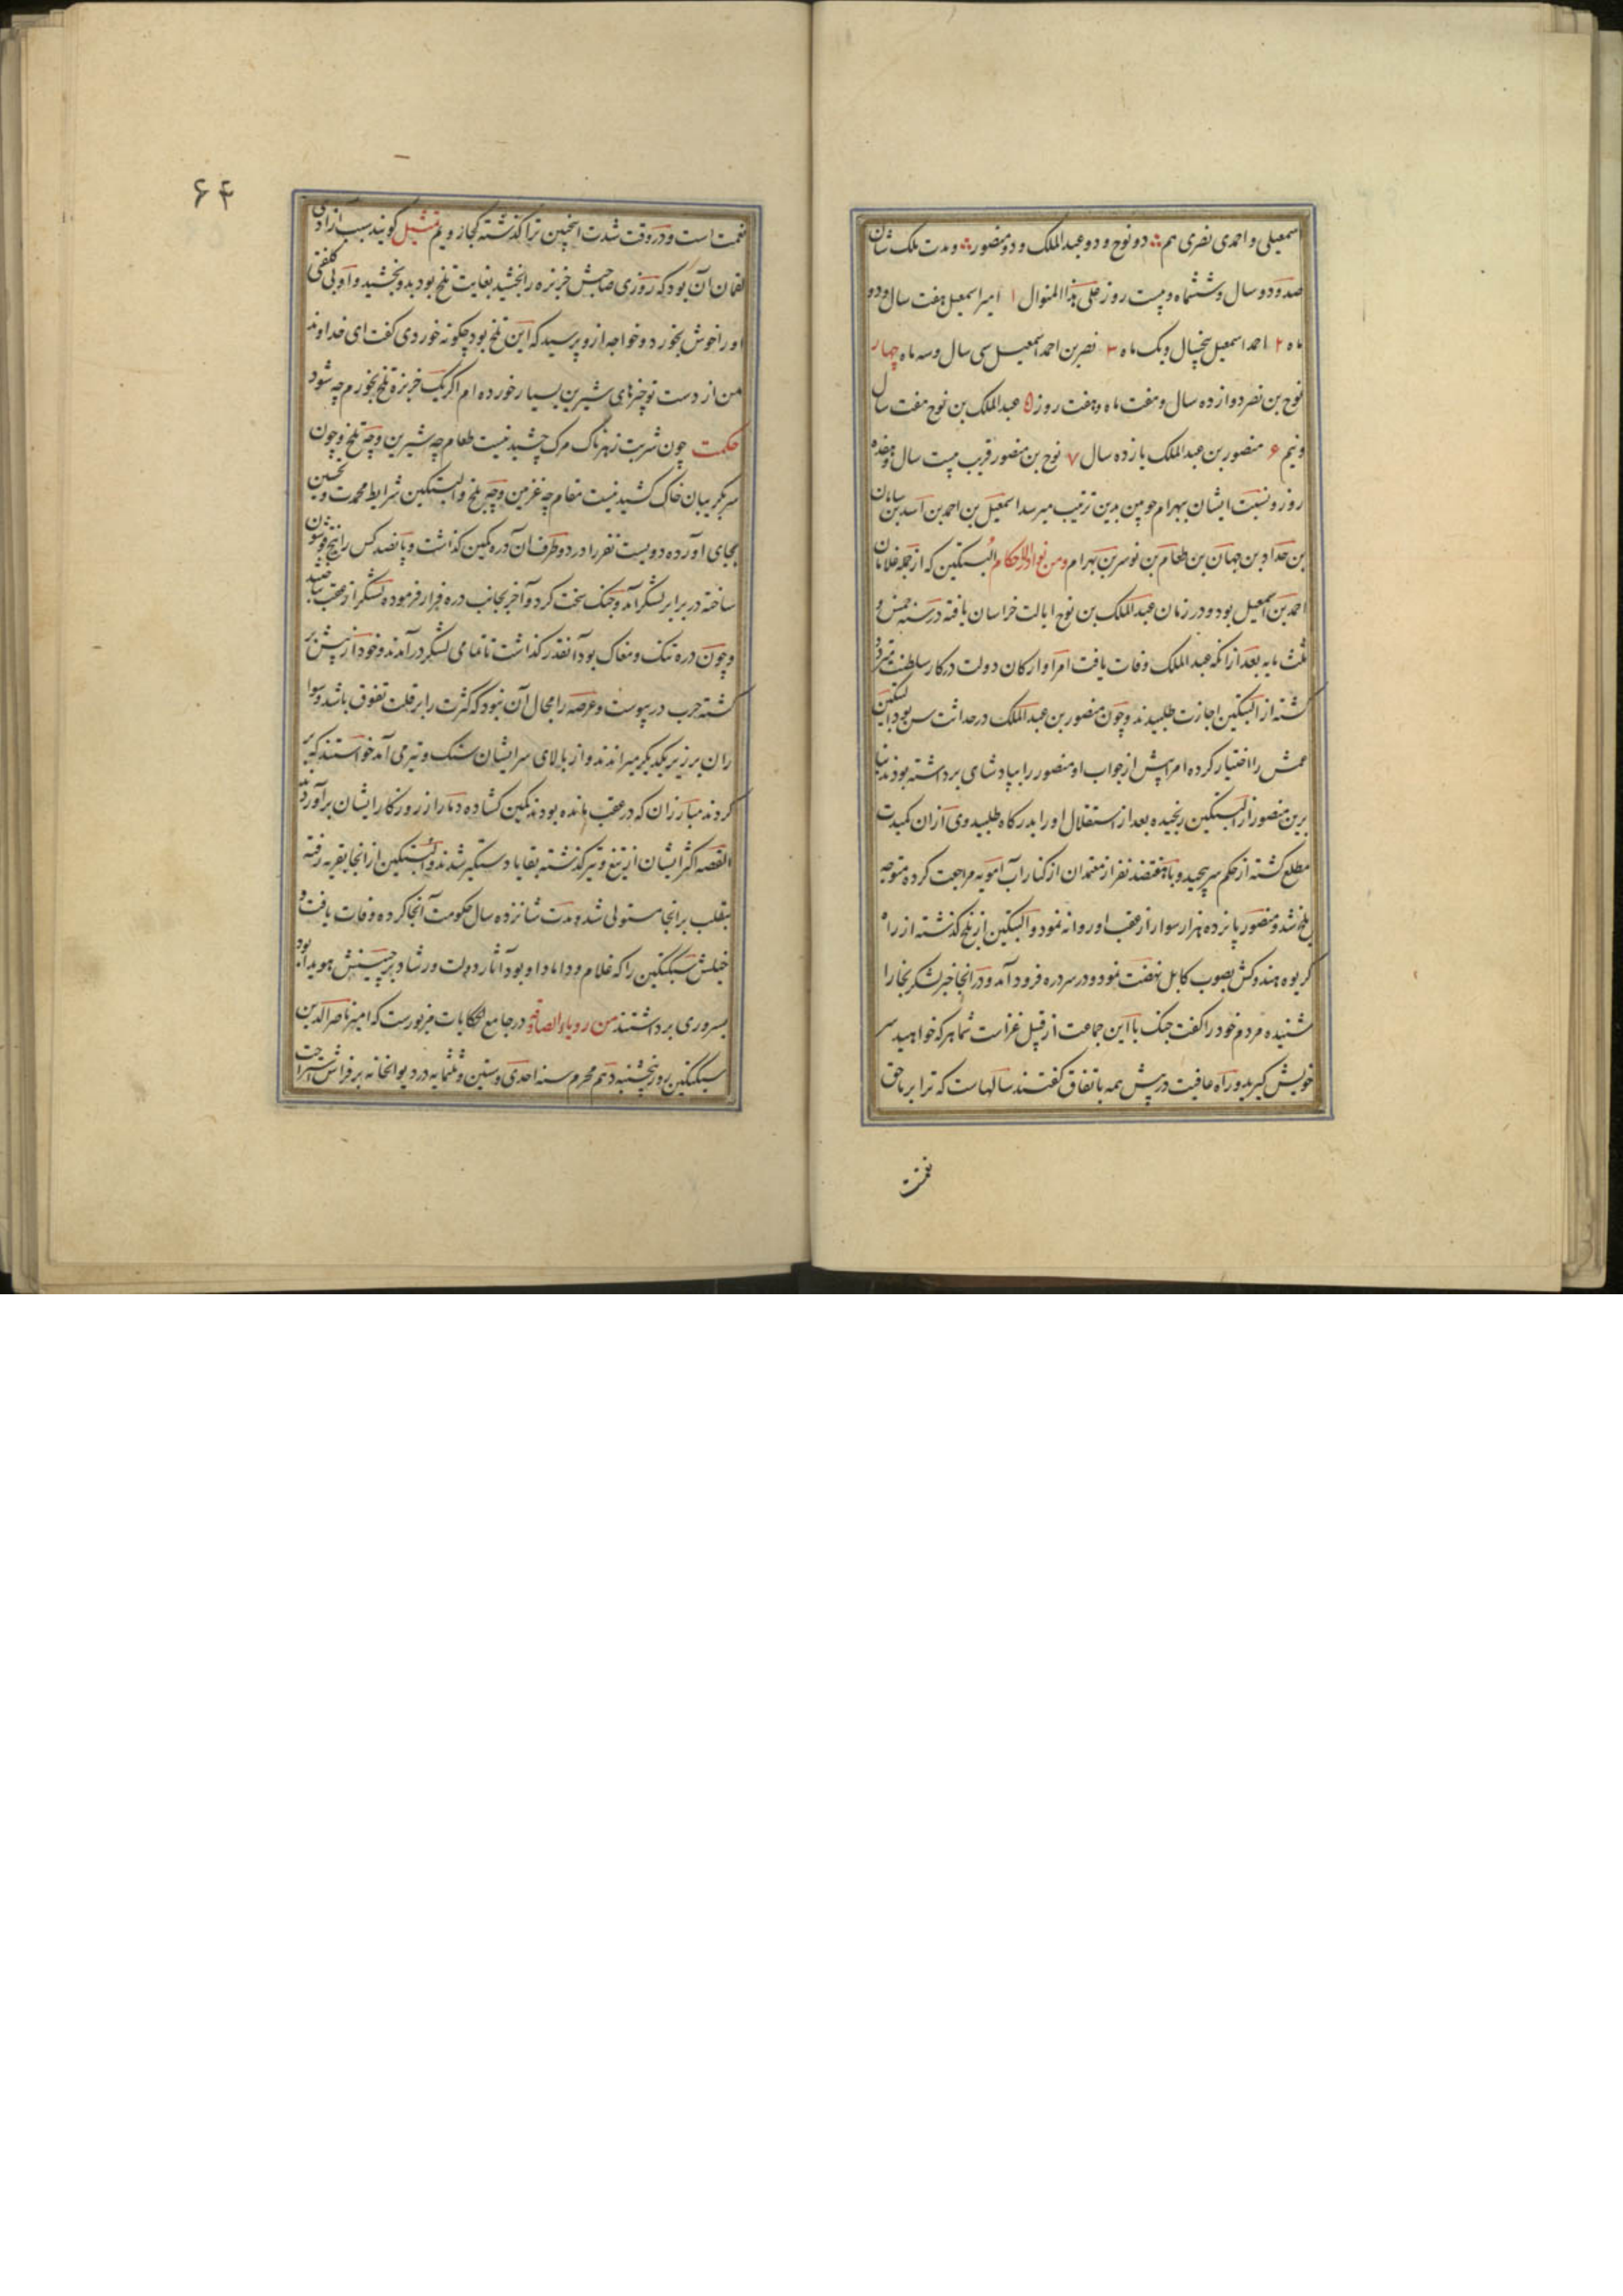 اسمعیلی و احمدی نصری هم دو نوح و دو عبدالملک و دو منصور و مدت ملک شان
صد و دو سال و ششماه و بیست روز علی هذا المنوال ۱ امیر اسمعیل هفت سال و دو
ماه ۲ احمد اسمعیل پنچسال و یک ماه ۳ نصر بن احمد اسمعیل سی سال و سه ماه چهار
نوح بن نصر دوازده سال و هفت ماه و هفت روز ۵ عبدالملک بن نوح هفت سال
و نیم ۶ منصور بن عبدالملک یازده سال ۷ نوح بن منصور قریب بیست سال و هفده
روز و نسبت ایشان ببهرام چوبین بدین ترتیب میرسد اسمعیل بن احمد بن اسد بن سامان
بن خداد بن جهان بن طغام بن نوسر بن بهرام و من نوادر الاحکام البتکین که از جمله غلامان
احمد بن اسمعیل بود و در زمان عبدالملک بن نوح ایالت خراسان یافته در سنه خمس و
ثلث مایه بعد از انکه عبدالملک وفات یافت امرا و ارکان دولت در کار سلطنت متردد
کشته از البتکین اجازت طلبیدند و چون منصور بن عبدالملک در حداثت سن بود البتکین
عمش را اختیار کرده امرا پیش از جواب او منصور را بپادشای برداشته بودند بنا
برین منصور از البتکین رنجیده بعد از استقلال او را بدرکاه طلبید وی از ان کمیدت
مطلع کشته از حکم سر پیچید و با هفتصد نفر از معتمدان از کنار آب آمویه مراجعت کرده متوجه
بلخ شد و منصور پانزده هزار سوار از عقب او روانه نمود و البتکین از بلخ کذشته از راه
کریوه هندوکش بصوب کابل نهضت نمود و در سر دره فرود آمد و در انجا خبر لشکر بخارا
شنیده مردم خود را کفت جنک با این جماعت از قبیل غزاست شما هر که خواهید سر
خویش کیرید و راه عافیت در پیش همه باتفاق کفتند سالهاست که ترا بر ما حق
نعمت
۶۴
نعمت است و در وقت شدت اینچنین ترا کذشته کجا رویم تمثیل کویند سبب ازادی
لقمان آن بود که روزی صاحبش خربزه را بخشید بغایت تلخ بود بدو بخشید و او بی کلفتی
او را خوش بخورد و خواجه ازو پرسید که این تلخ بود چکونه خوردی کفت ای خداوند
من از دست تو چیزهای شیرین بسیار خورده ام اکر یک خربزه تلخ بخورم چه شود
حکمت چون شربت زهرناک مرک چشیدنیست طعام چه شیرین و چه تلخ و چون
سر بکریبان خاک کشیدنیست مقام چه غزنین و چه بلخ و البتکین شرایط محمدت و تحسین
بجای اورده دویست نفر را در دو طرف ان دره بکمین کذاشت و پانصد کس را پنج قوشون
ساخته در برابر لشکر آمد و جنک سخت کرد و آخر بجانب دره فرار فرموده لشکر از عقب شتابید
و چون دره تنک و مغاک بود آنقدر کذاشت تا تمامی لشکر در آمدند و خود از پیش بر
کشته حرب در پیوست و عرصه را مجال آن نبود که کثرت را بر قلت تفوق باشد و سوا
ران بر زبر یکدیکر میراندند و از بالای سر ایشان سنک و تیر می آمد خواستند که بر
کردند مبارزان که در عقب مانده بودند کمین کشاده دمار از روزکار ایشان برآوردند
القصه اکثر ایشان از تیغ و تیر کذشته بقایا دستکیر شدند و البتکین از انجا بغزنه رفته
بتقلب بر انجا مستولی شد و مدت شانزده سال حکومت آنجا کرده وفات یافت و
خیلش سبکتکین را که غلام و داماد او بود و آثار دولت و رشاد بر جبینش هویدا بود
بسروری برداشتند من رویاء الصادقه در جامع الحکایات مزبورست که امیر ناصر الدین
سبکتکین روز پنچشنبه دهم محرم سنه احدی و ستین و ثلثمایه در دیوانخانه بر فراش استراحت